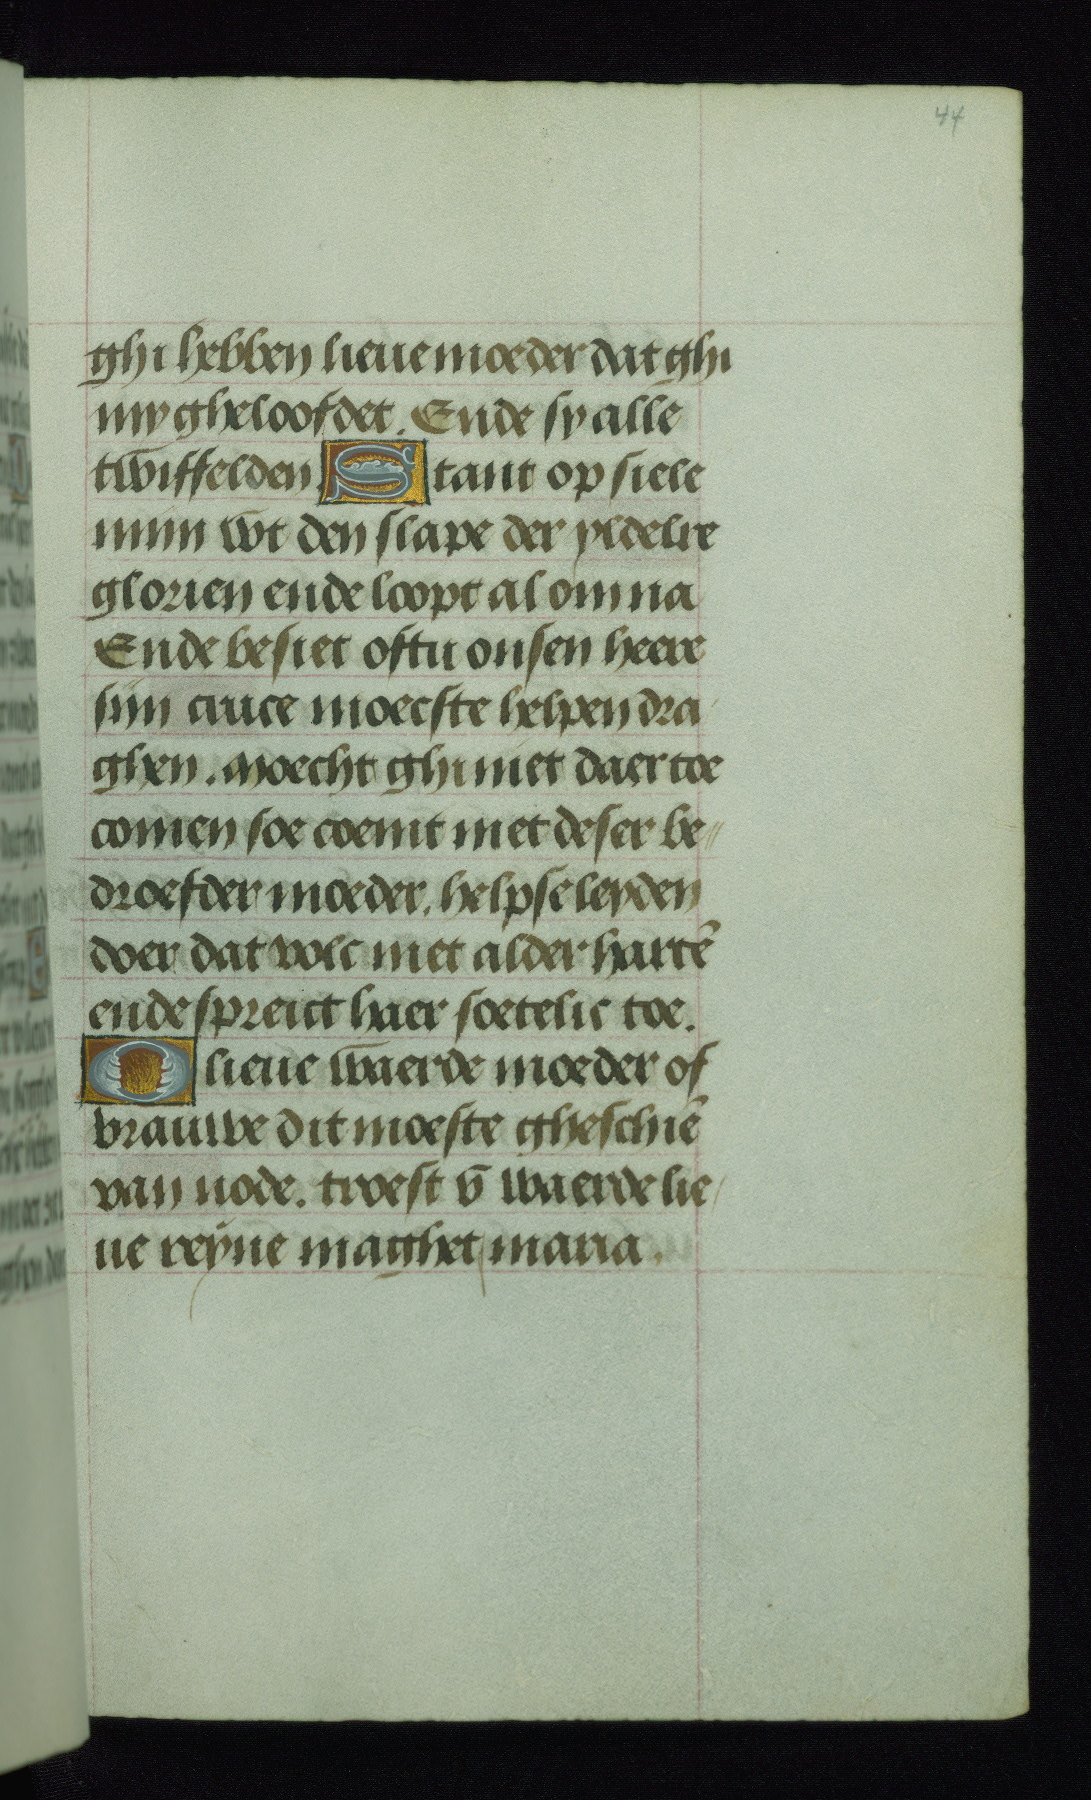 44
ghi hebben lieue moeder dat ghi
my gheloofdet. Ende sy alle
twiffelden. Stant op siele
mijn wt den slape der ydelre
glorien ende loopt al om na
Ende besiet oftu onsen heere
sijn cruce moecste helpen dra
ghen. Moecht ghi niet daer toe
comen soe coemt met deser be//
droefder moeder. helpse leyden
doer dat volc met alder hartē
ende spreict haer soetelic toe.
O lieue waerde moeder of
vrauwe dit moeste gheschiē
van node. troest v̄ waerde lie/
ue reyne maghet maria.